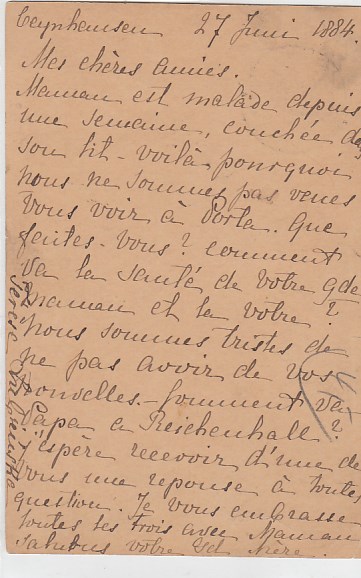 Oeynhausen 27 Juni 1884.
Mes chères amies.
Maman est malade depuis
une semaine, couchée dans
son lit - voilà pourquoi
nous ne sommes pas venues
vous voir à Porta. Que
faites-vous? comment
va la santé de votre Gde
maman et la votre?
Nous sommes tristes de
ne pas avoir de vos
nouvelles. Comment va
Papa à Reichenhall?
J'espère recevoir d'une de
vous une réponse à toute
question. Je vous embrasse
toutes les trois avec Maman